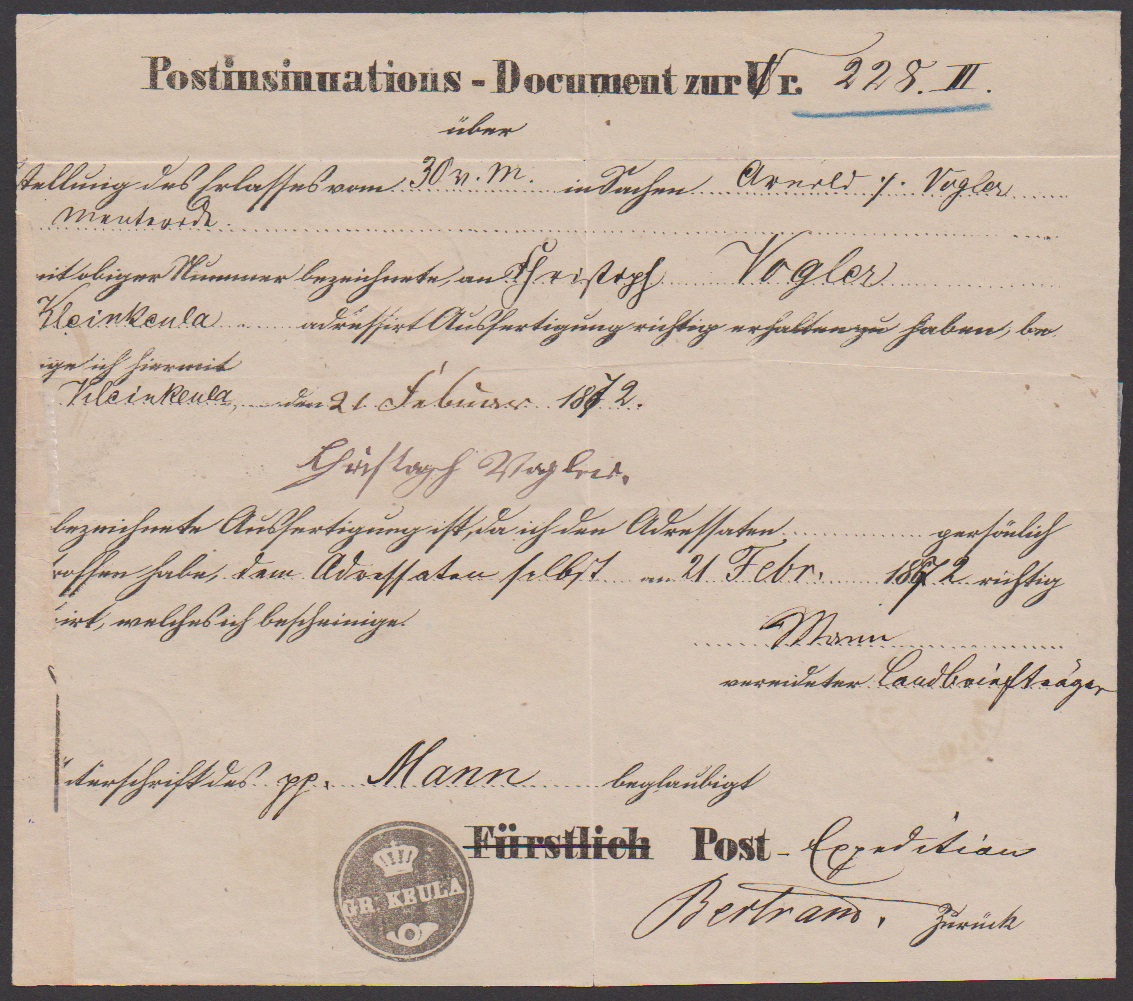 Postinsinuations - Document zur Nr. 228. III.
über
tellung des Erlasses vom 30 v. M. in Sachen Arnold ./. Vogler
Menterode
mit obiger Nummer bezeichnete, an Christoph Vogler
Kleinkeula adressirt Ausfertigung richtig erhalten zu haben, be
ige ich hiermit
Kleinkeula, den 21 Februar 1872.
Christoph Vogler.
bezeichnete Ausfertigung ist, da ich den Adressaten persönlich
roffen habe, dem Adressaten selbst am 21 Febr. 1872 richtig
irt, welches ich bescheinige.
Mann
vereideter Landbriefträger
nterschrift des pp. Mann beglaubigt
Fürstlich Post - Expedition
GR. KEULA
Bertram. Zurück